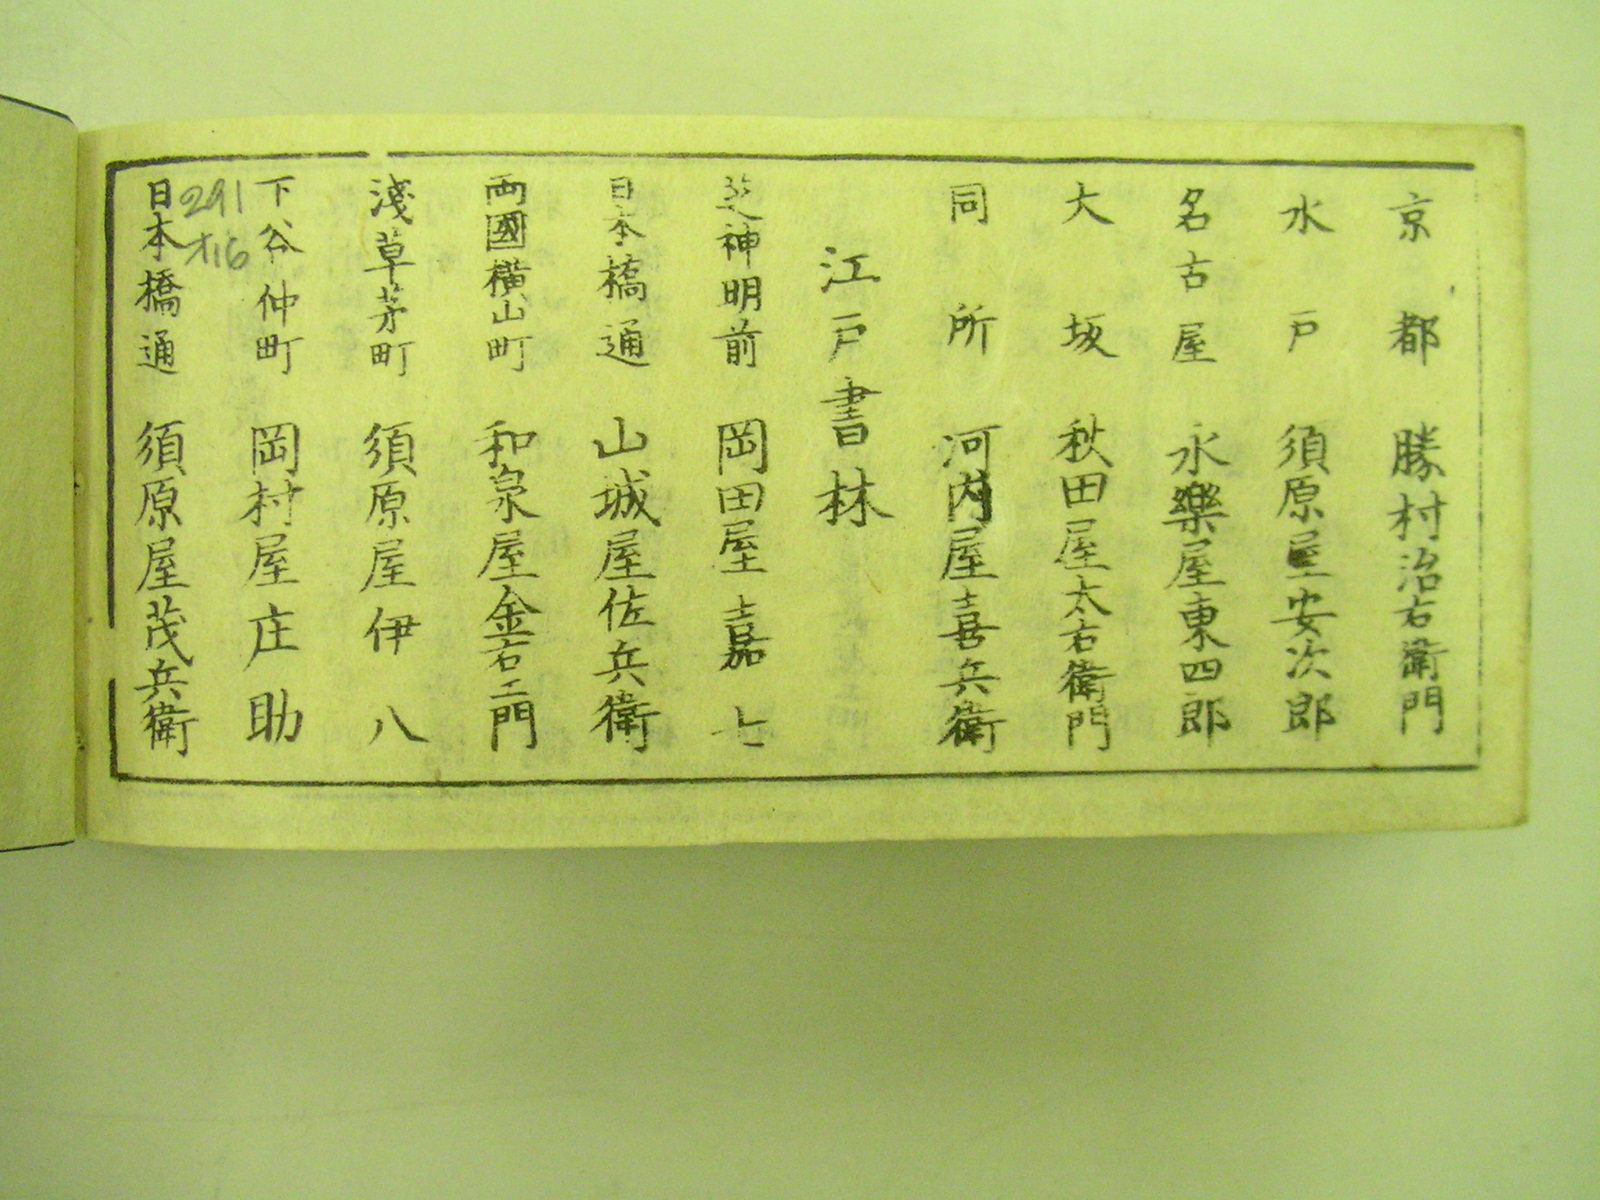 京都 勝村治右衛門
水戸 須原屋安次郎
名古屋 永樂屋東四郎
大坂 秋田屋太右衛門
同所 河内屋喜兵衛
江戸書林
芝神明前 岡田屋嘉七
日本橋通 山城屋佐兵衛
両國横山町 和泉屋金右エ門
淺草茅町 須原屋伊八
下谷仲町 岡村屋庄助
日本橋通 須原屋茂兵衛
291